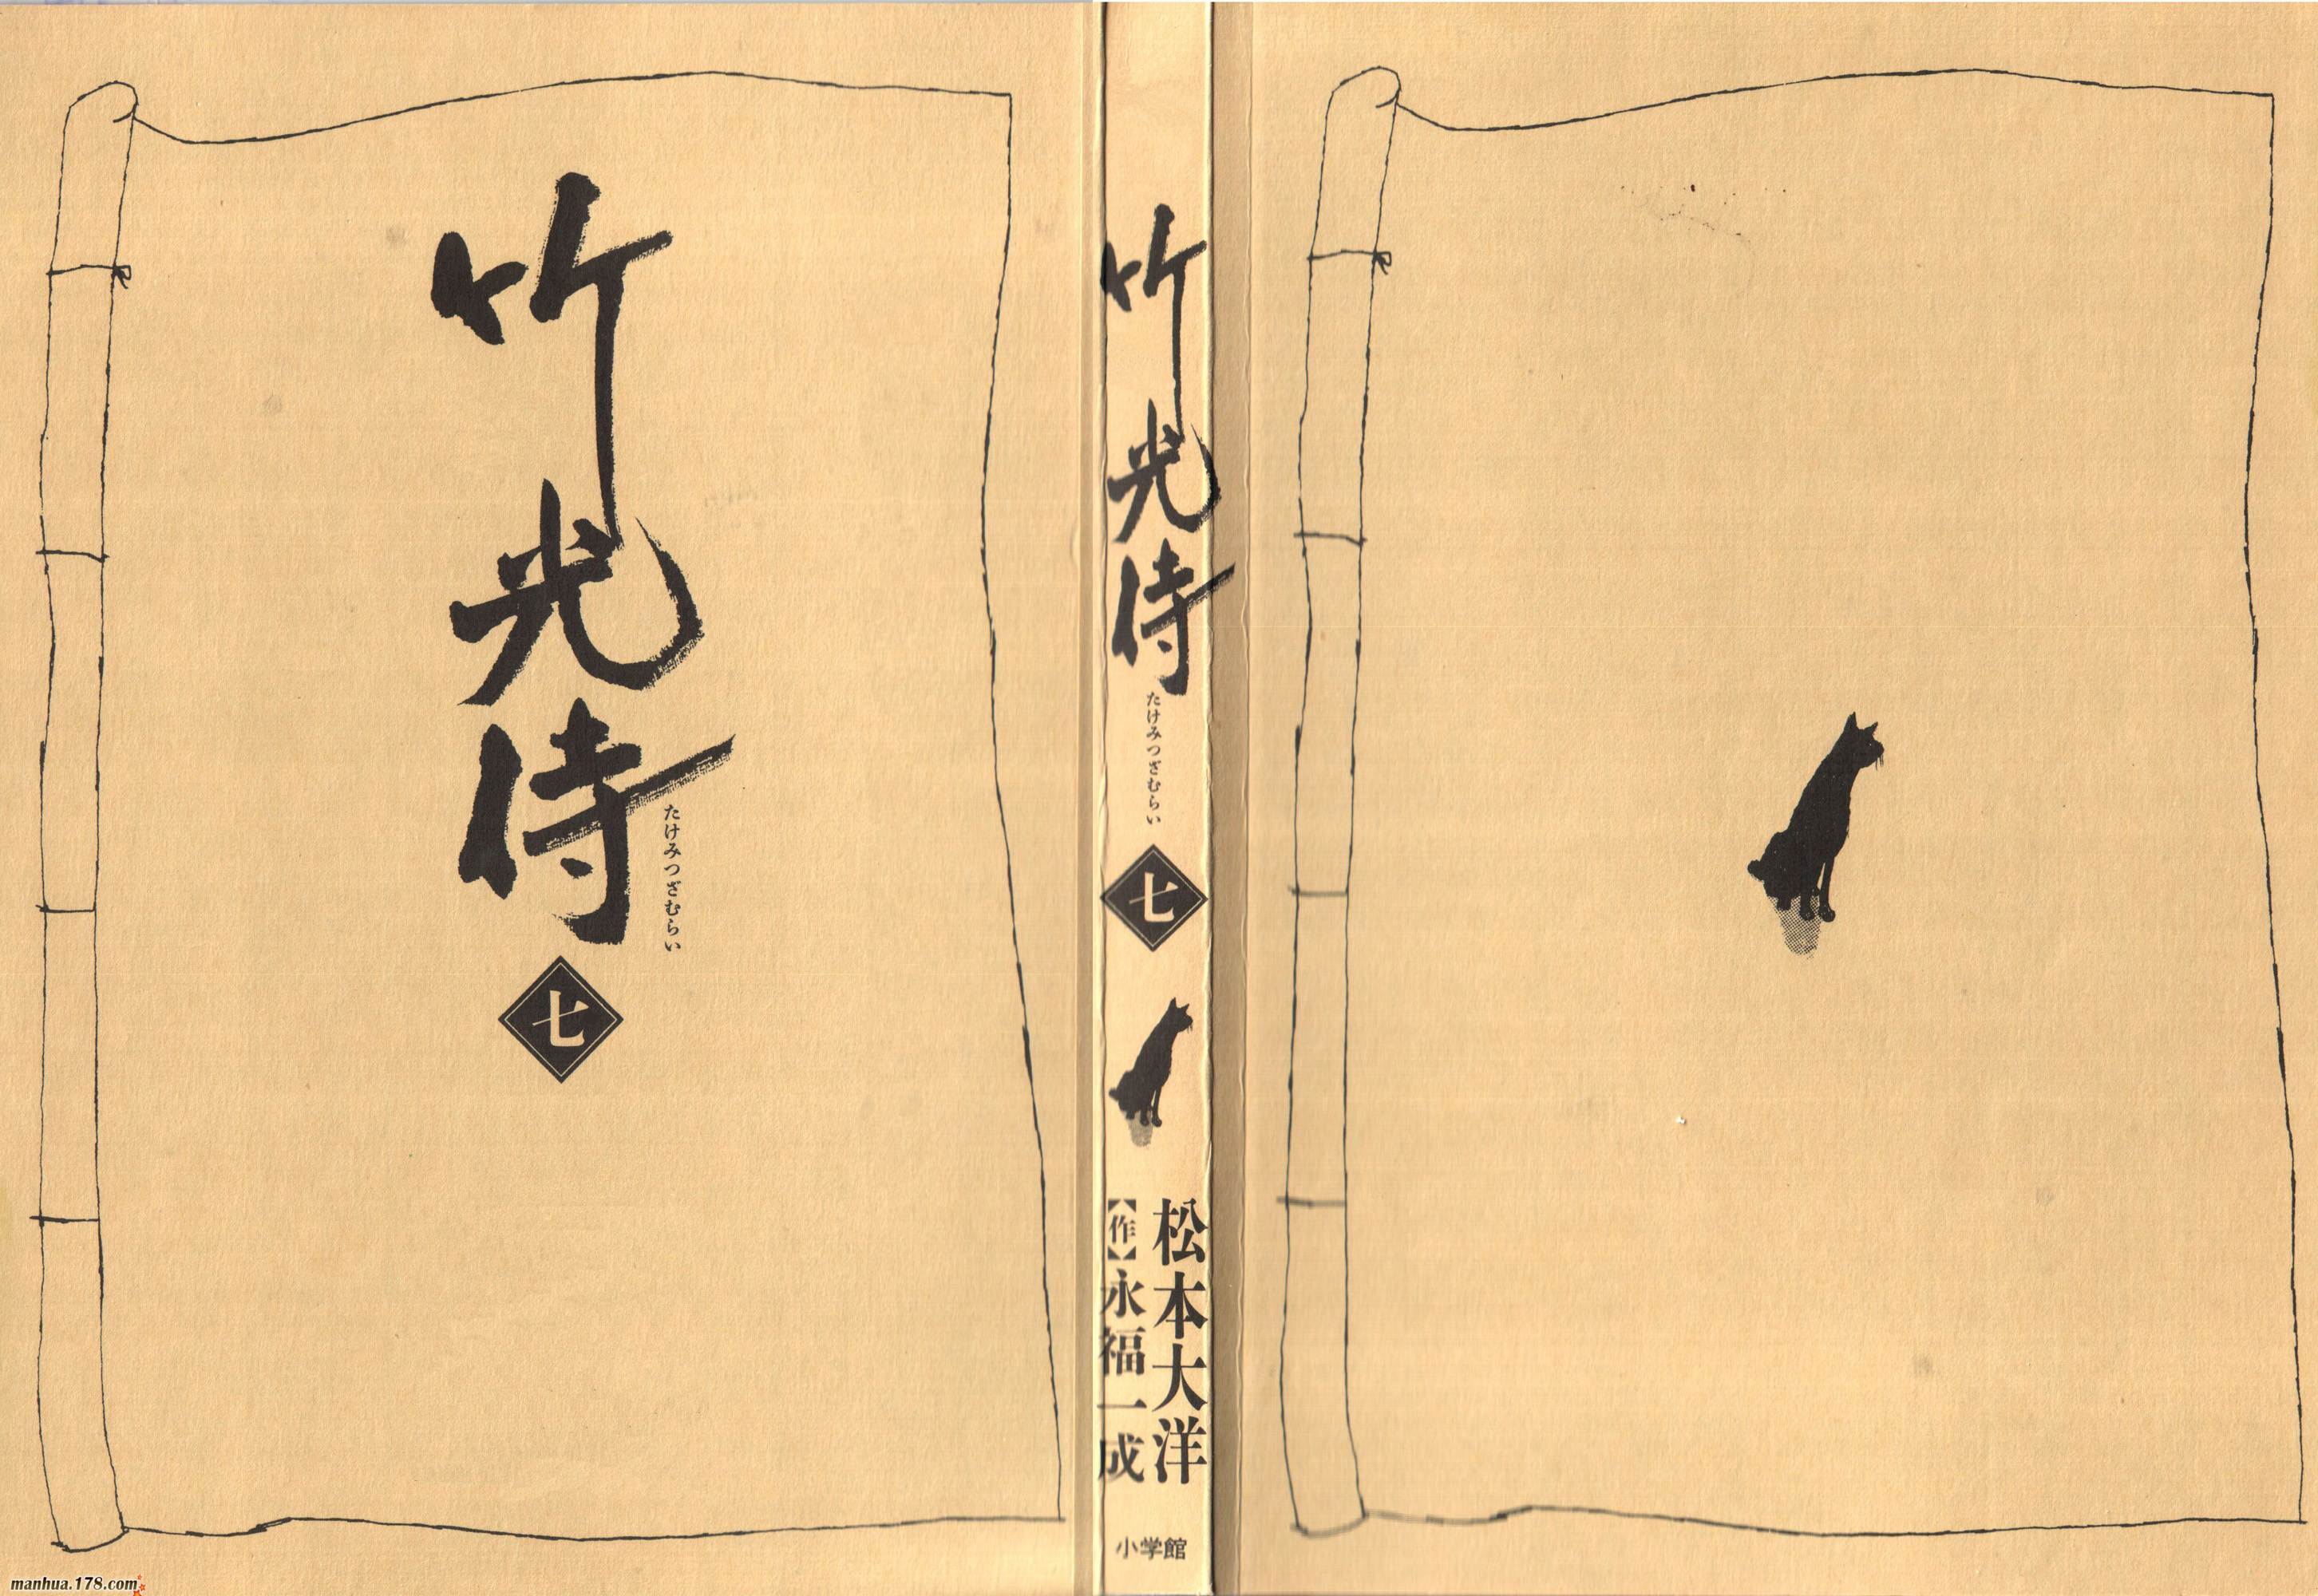 竹光侍
たけみつざむらい
七
竹光侍
たけみつざむらい
七
松本大洋
【作】永福一成
小学館
manhua.178.com